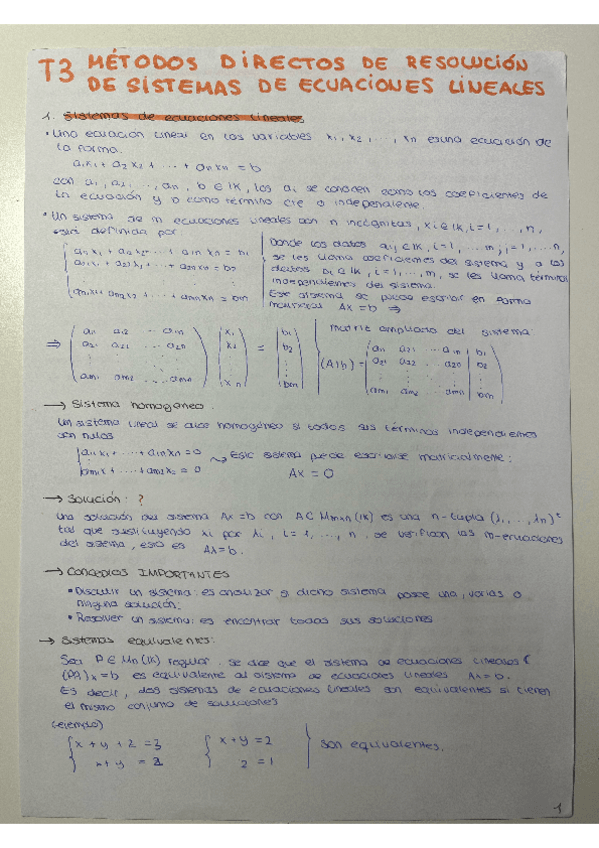 T3 MÉTODOS DIRECTOS DE RESOLUCIÓN
DE SISTEMAS DE ECUACIONES LINEALES
1. Sistemas de ecuaciones lineales
• Una ecuación lineal en las variables x₁, x₂, ..., xn es una ecuación de
la forma:
a₁x₁ + a₂x₂ + ... + anxn = b
con a₁, a₂, ..., an, b ∈ IK, los ai se conocen como los coeficientes de
la ecuación y b como término cte o independiente.
• Un sistema de m ecuaciones lineales con n incógnitas, xi ∈ IK, i = 1, ..., n,
está definida por:
a₁₁x₁ + a₁₂x₂ + ... + a₁nxn = b₁
a₂₁x₁ + a₂₂x₂ + ... + a₂nxn = b₂
am₁x₁ + am₂x₂ + ... + amnxn = bm
Donde los datos aij ∈ IK, i = 1, ..., m, j = 1, ..., n,
se les llama coeficientes del sistema y a los
datos bi ∈ IK, i = 1, ..., m, se les llama términos
independientes del sistema.
Este sistema se puede escribir en forma
matricial Ax = b ⇒
⇒ (a₁₁ a₁₂ ... a₁n) (x₁) = (b₁)
a₂₁ a₂₂ ... a₂n x₂ b₂
am₁ am₂ ... amn xn bm
Matriz ampliada del sistema
(A|b) = (a₁₁ a₁₂ ... a₁n | b₁)
a₂₁ a₂₂ ... a₂n | b₂
am₁ am₂ ... amn | bm
→ Sistema homogéneo.
Un sistema lineal se dice homogéneo si todos sus términos independientes
son nulos
a₁₁x₁ + ... + a₁nxn = 0
am₁x + ... + am₂x₂ = 0
Este sistema puede escribirse matricialmente:
Ax = 0
→ Solución: ?
Una solución del sistema Ax = b con A ∈ Mmxn (IK) es una n-tupla (λ₁, ..., λn)ᵗ
tal que sustituyendo xi por λi, i = 1, ..., n se verifican las m-ecuaciones
del sistema, esto es Aλ = b.
→ CONCEPTOS IMPORTANTES
• Discutir un sistema: es analizar si dicho sistema posee una, varias o
ninguna solución.
• Resolver un sistema: es encontrar todas sus soluciones
→ Sistemas equivalentes:
Sea P ∈ Mn (IK) regular. Se dice que el sistema de ecuaciones lineales
(PA)x = b es equivalente al sistema de ecuaciones lineales Ax = b.
Es decir, dos sistemas de ecuaciones lineales son equivalentes si tienen
el mismo conjunto de soluciones
(ejemplo)
x + y + z = 3
x + y = 2
x + y = 2
z = 1
son equivalentes.
1